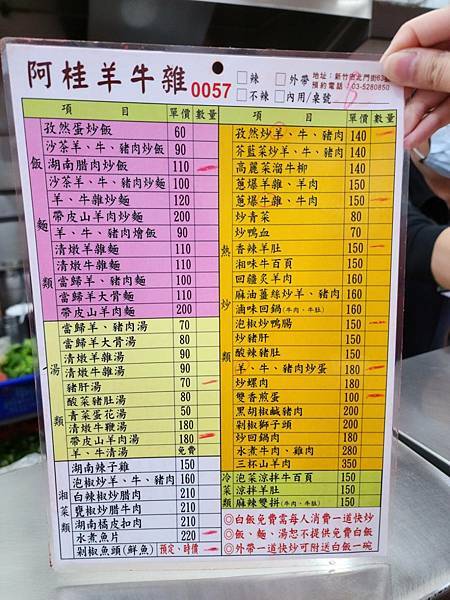 阿桂羊牛雜
0057
□辣 □外帶
□不辣 □內用/桌號
地址：新竹市北門街63
預約電話：03-5280850
項目 單價 數量
飯麵類
孜然蛋炒飯 60
沙茶羊、牛、豬肉炒飯 90
湖南腊肉炒飯 110
沙茶羊、牛、豬肉炒麵 100
羊、牛雜炒麵 120
帶皮山羊肉炒麵 200
羊、牛、豬肉燴飯 90
清燉羊雜麵 110
清燉牛雜麵 110
當歸羊、豬肉麵 100
當歸羊大骨麵 110
帶皮山羊肉麵 200
湯類
當歸羊、豬肉湯 70
當歸羊大骨湯 80
清燉羊雜湯 90
清燉牛雜湯 90
豬肝湯 70
酸菜豬肚湯 80
青菜蛋花湯 50
清燉牛鞭湯 180
帶皮山羊肉湯 180
羊、牛清湯 免費
湘菜類
湖南辣子雞 150
泡椒炒羊、牛、豬肉 160
白辣椒炒腊肉 210
甕椒炒腊牛肉 210
湖南橘皮扣肉 210
水煮魚片 220
剁椒魚頭(鮮魚) 預定、時價
項目 單價 數量
熱炒類
孜然炒羊、牛、豬肉 140
芥藍菜炒羊、牛、豬肉 140
高麗菜溜牛柳 140
蔥爆羊雜、羊肉 150
蔥爆牛雜、牛肉 150
炒青菜 80
炒鴨血 70
香辣羊肚 150
湘味牛百頁 150
回疆炙羊肉 160
麻油薑絲炒羊、豬肉 160
滷味回鍋(牛肉、牛肚) 160
泡椒炒鴨腸 150
炒豬肝 150
酸辣豬肚 150
羊、牛、豬肉炒蛋 180
炒螺肉 180
雙香煎蛋 100
黑胡椒鹹豬肉 200
剁椒獅子頭 200
炒回鍋肉 180
水煮牛肉、雞肉 280
三杯山羊肉 350
冷菜類
泡菜涼拌牛百頁 150
涼拌羊肚 150
麻辣雙拼(牛肉、牛肚) 150
◎白飯免費需每人消費一道快炒
◎飯、麵、湯恕不提供免費白飯
◎外帶一道快炒可附送白飯一碗